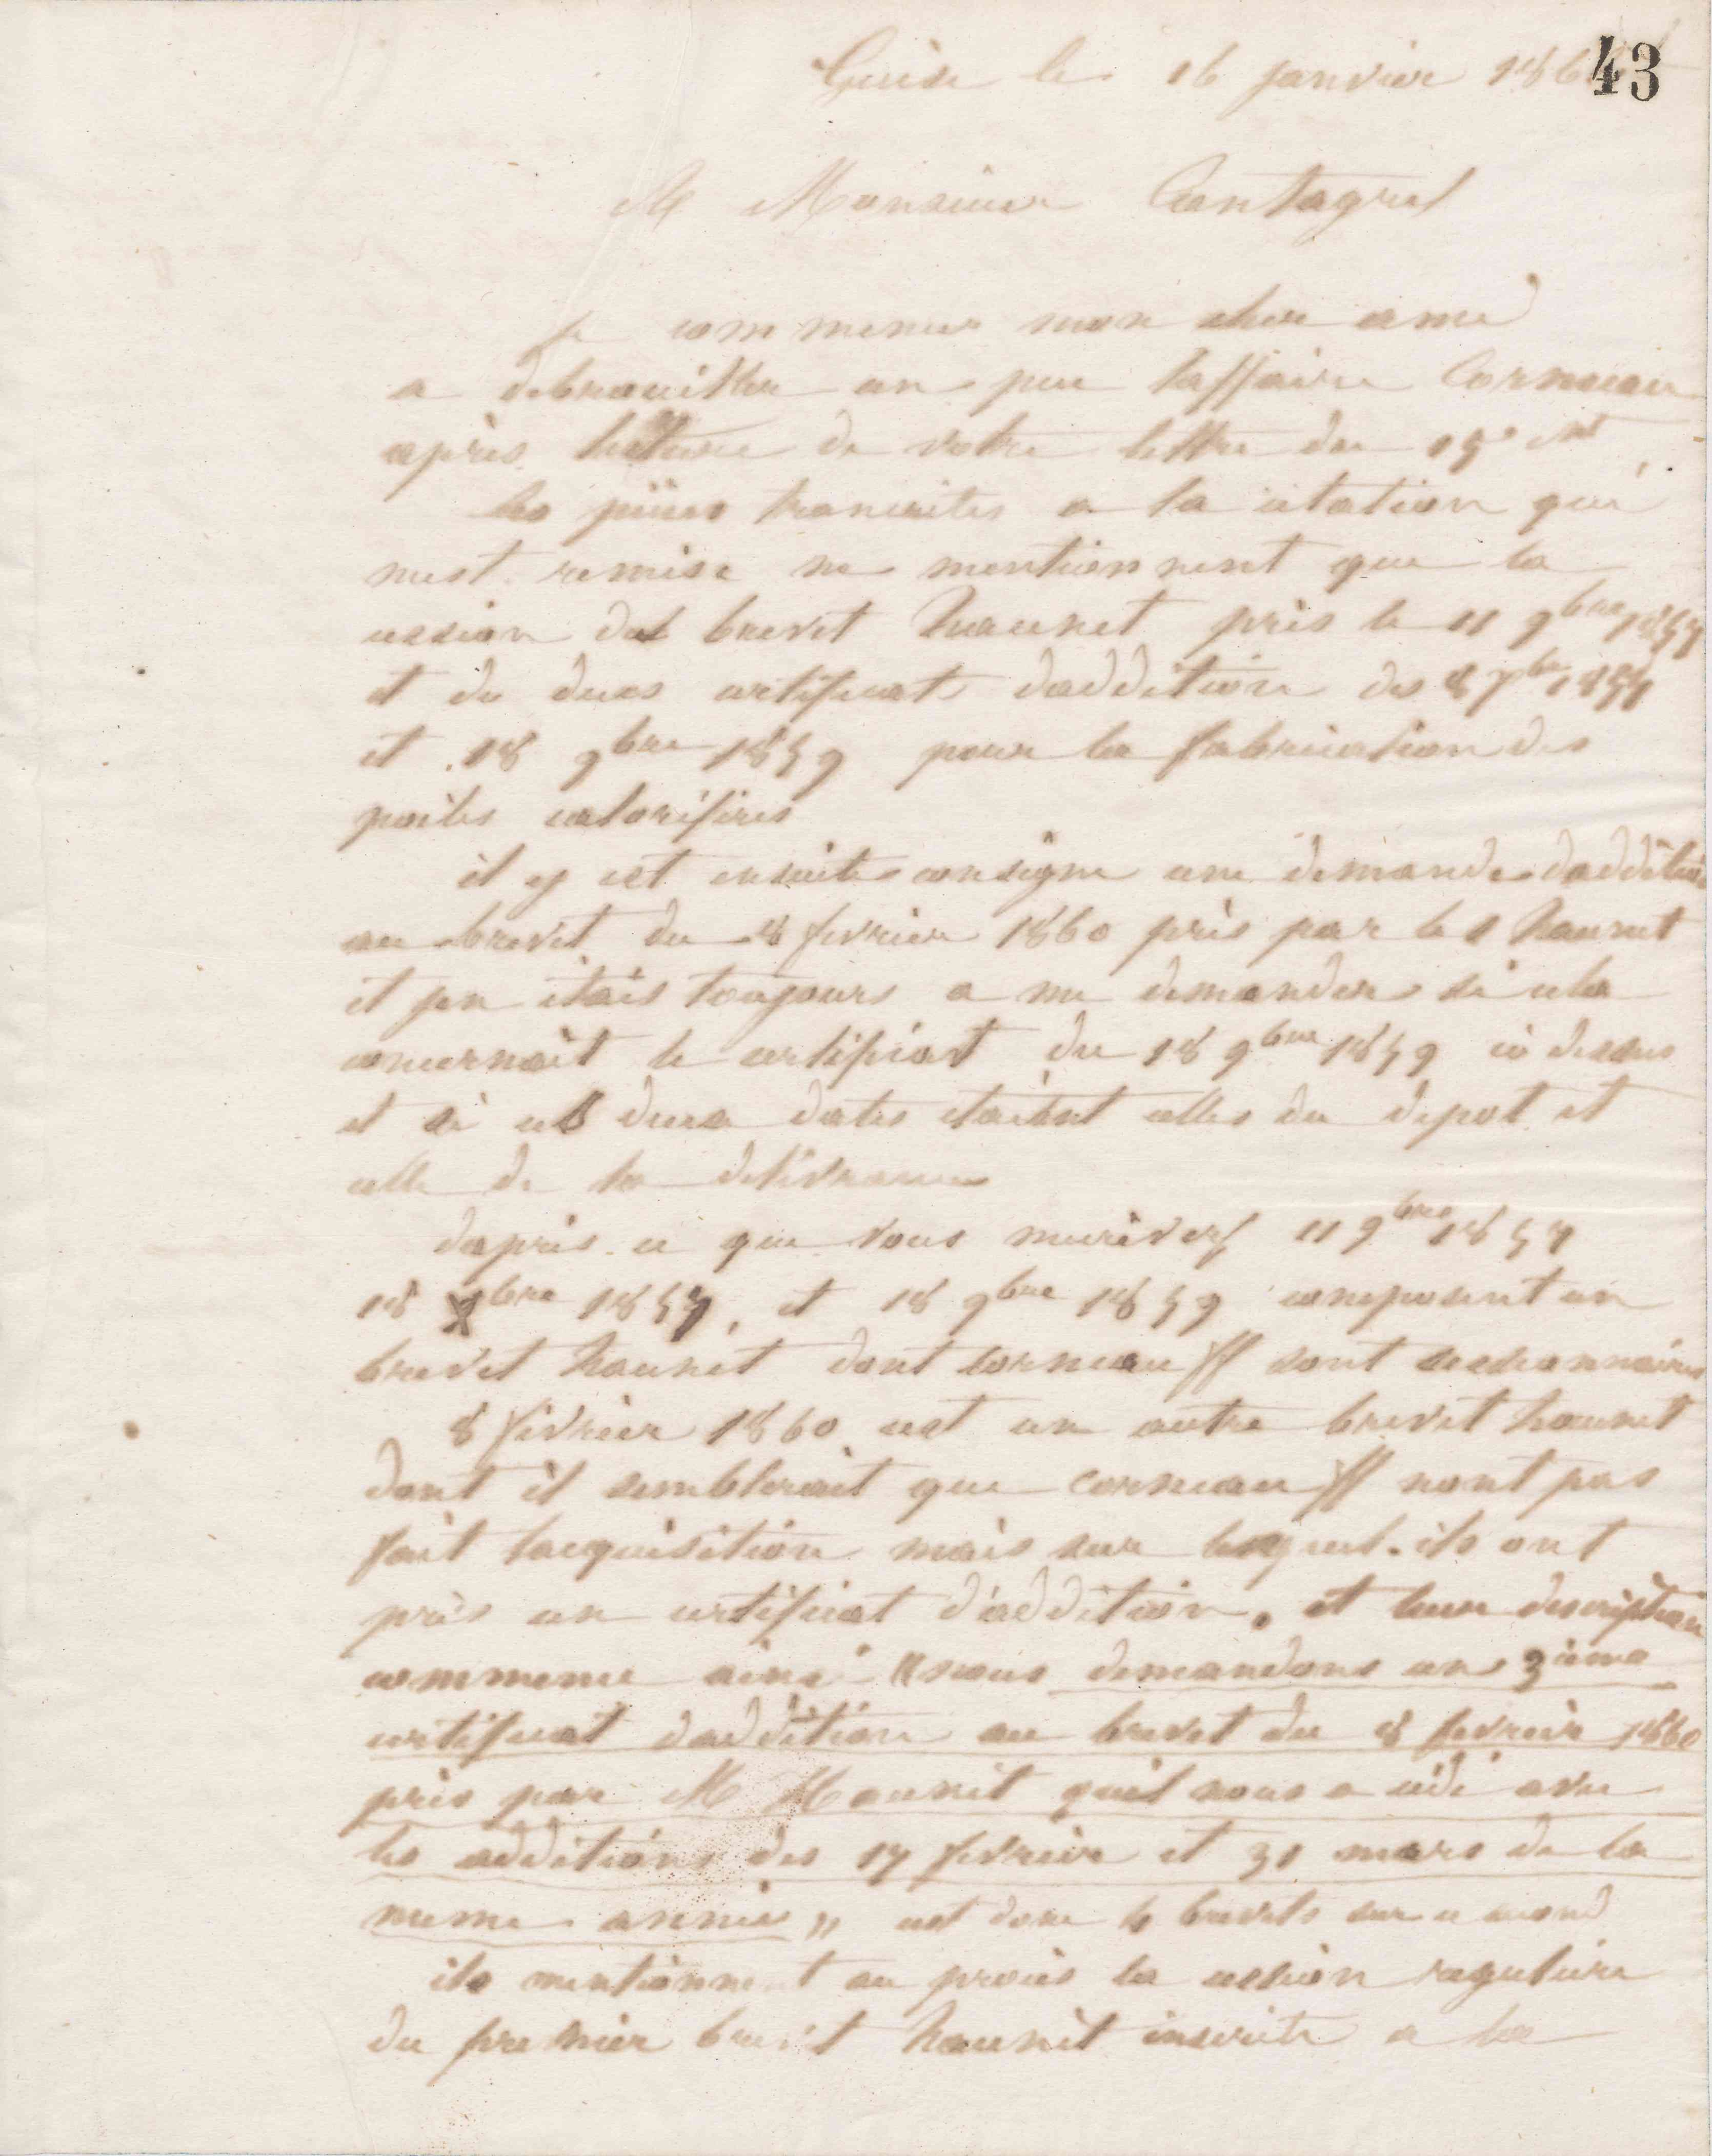 Guise le 16 janvier 186
43
A Monsieur Cantagrel
je commence mon cher ami
a debrouiller un peu laffaire Corneau
après lecture de votre lettre du 15 ct
les pièces transcrites a la citation qui
mest remise ne mentionnent que la
cession du brevet haunet pris le 11 9bre 1857
et de deux certificats daddition des 8 7bre 1857
et 18 9bre 1859 pour la fabrication des
poêles calorifères
il y est ensuite consigne une demande daddition
au brevet du 8 fevrier 1860 pris par le s haunet
et jen étais toujours a me demander si cela
concernait le certificat du 18 9bre 1859 ci dessus
et si ces deux dates étaient celles du depot et
celle de la délivrance
daprès ce que vous mecrivez 11 9bre 1857
18 bre 1857, et 18 9bre 1859 composent un
brevet haunet dont corneau ff sont cessionnaires
8 février 1860 est un autre brevet haunet
dont il semblerait que corneau ff nont pas
fait lacquisition mais sur lequel ils ont
pris un certificat d'addition. et leur description
commence ainsi "nous demandons un 3ième
certificat daddition au brevet du 8 fevrier 1860
pris par M Haunet quil nous a cédé avec
les additions des 17 fevrier et 31 mars de la
meme année" est donc 4 brevets sur ce second
ils mentionnent au procès la cession regulière
du premier brevet haunet inscrite a la